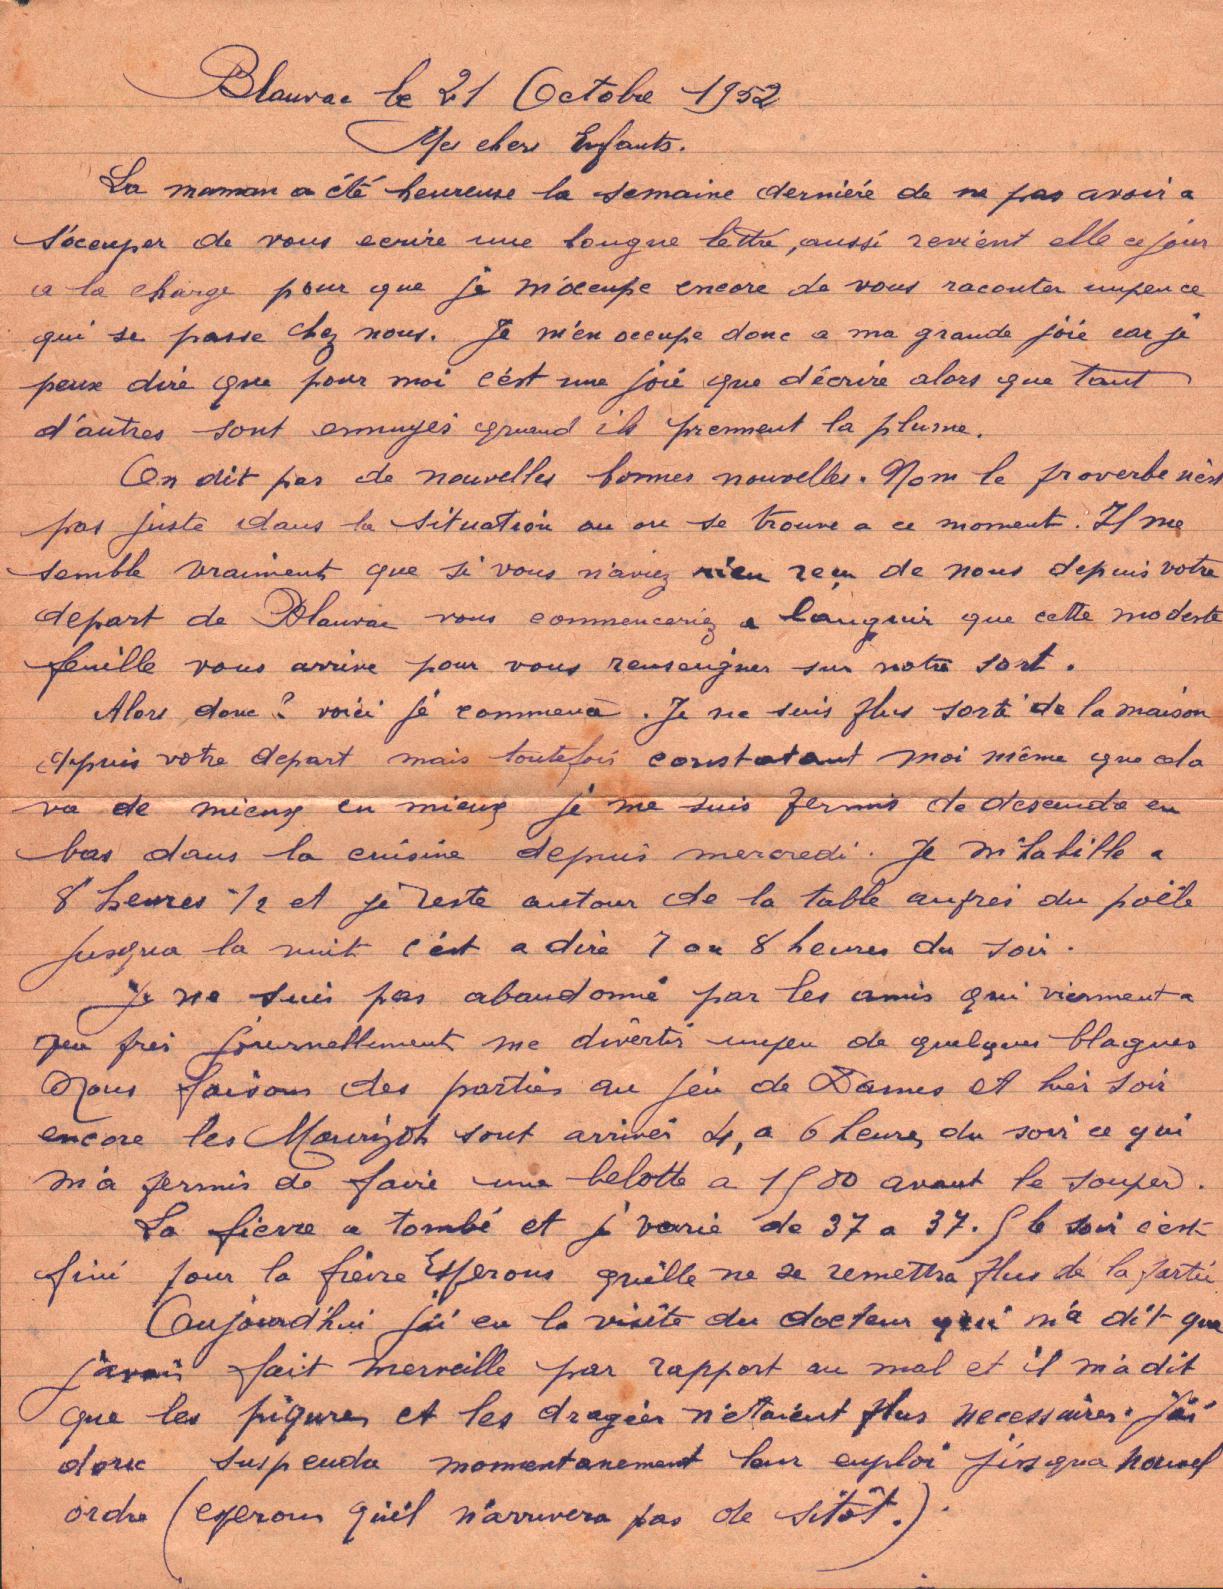 Blauvac le 21 Octobre 1952
Mes chers Enfants.
La maman a été heureuse la semaine dernière de ne pas avoir a
s'occuper de vous ecrire une longue lettre, aussi revient elle ce jour
a la charge pour que je m'occupe encore de vous raconter unpeu ce
qui se passe chez nous. Je m'en occupe donc a ma grande joie car je
peux dire que pour moi c'est une joie que d'écrire alors que tant
d'autres sont ennuyés quand ils prennent la plume.
On dit pas de nouvelles bonnes nouvelles. Non le proverbe n'est
pas juste dans la situation ou on se trouve a ce moment. Il me
semble vraiment que si vous n'aviez rien reçu de nous depuis votre
depart de Blauvac vous commenceriez a languir que cette modeste
feuille vous arrive pour vous renseigner sur notre sort.
Alors donc ? voici je commence. Je ne suis plus sorti de la maison
depuis votre depart mais toutefois constatant moi même que cela
va de mieux en mieux je me suis permis de descendre en
bas dans la cuisine depuis mercredi. Je m'habille a
8 heures 1/2 et je reste autour de la table auprès du poêle
jusqua la nuit c'est a dire 7 ou 8 heures du soir.
Je ne suis pas abandonné par les amis qui viennent a
peu près journellement me divertir unpeu de quelques blagues
Nous faisons des parties au jeu de Dames et hier soir
encore les Mourizot sont arrivés 4, a 6 heures du soir ce qui
m'a permis de faire une belotte a 1500 avant le souper.
La fievre a tombé et je varie de 37 a 37.5 le soir c'est
fini pour la fièvre Esperons qu'elle ne se remettra plus de la partie
Aujourd'hui j'ai eu la visite du docteur qui m'a dit que
j'avais fait merveille par rapport au mal et il m'a dit
que les piqures et les dragées n'étaient plus necessaires. J'ai
donc suspendu momentanement leur emploi jusqua nouvel
ordre (esperons qu'il n'arrivera pas de sitôt.).